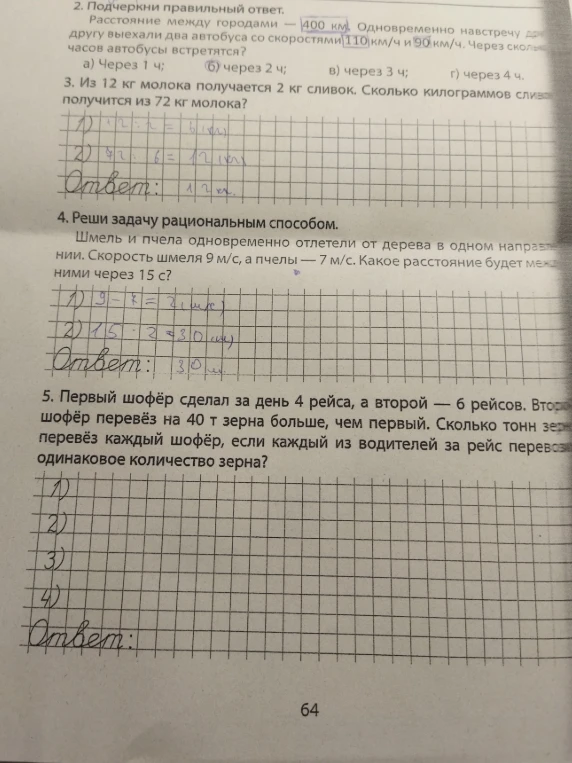 2. Подчеркни правильный ответ.
Расстояние между городами — 400 км. Одновременно навстречу
другу выехали два автобуса со скоростями 110 км/ч и 90 км/ч. Через
часов автобусы встретятся?
а) Через 1 ч; б) через 2 ч; в) через 3 ч; г) через 4 ч.
3. Из 12 кг молока получается 2 кг сливок. Сколько килограммов
получится из 72 кг молока?
1) 12 : 2 = 6 (кг)
2) 72 : 6 = 12 (кг)
Ответ: 12 кг.
4. Реши задачу рациональным способом.
Шмель и пчела одновременно отлетели от дерева в одном
нии. Скорость шмеля 9 м/с, а пчелы — 7 м/с. Какое расстояние будет
ними через 15 с?
1) 9 - 7 = 2
2) 15 · 2 = 30 (м)
Ответ: 30 м.
5. Первый шофёр сделал за день 4 рейса, а второй — 6 рейсов.
шофёр перевёз на 40 т зерна больше, чем первый. Сколько тонн
перевёз каждый шофёр, если каждый из водителей за рейс
одинаковое количество зерна?
1)
2)
3)
4)
Ответ:
64